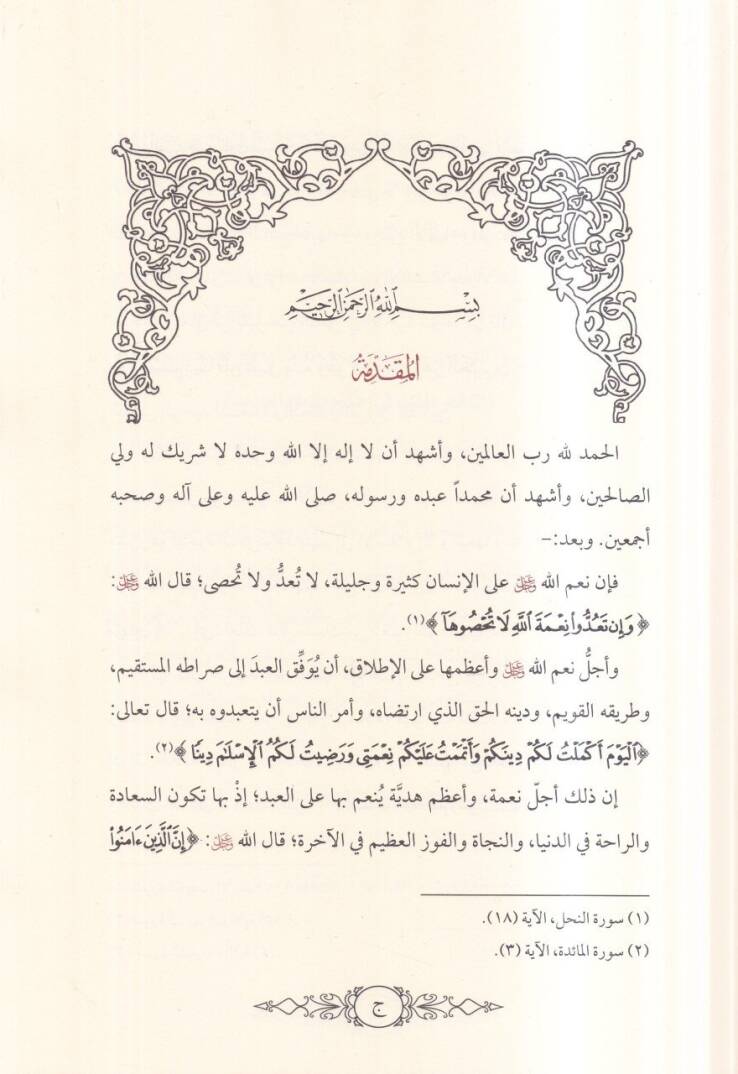 بِسْمِ اللَّهِ الرَّحْمَٰنِ الرَّحِيمِ
المُقَدِّمَةُ
الحمد لله رب العالمين، وأشهد أن لا إله إلا الله وحده لا شريك له ولي
الصالحين، وأشهد أن محمداً عبده ورسوله، صلى الله عليه وعلى آله وصحبه
أجمعين. وبعد:–
فإن نعم الله عز وجل على الإنسان كثيرة وجليلة، لا تُعدُّ ولا تُحصى؛ قال الله عز وجل:
﴿وَإِن تَعُدُّواْ نِعْمَةَ ٱللَّهِ لَا تُحْصُوهَآ﴾(١).
وأجلُّ نعم الله عز وجل وأعظمها على الإطلاق، أن يُوَفِّق العبدَ إلى صراطه المستقيم،
وطريقه القويم، ودينه الحق الذي ارتضاه، وأمر الناس أن يتعبدوه به؛ قال تعالى:
﴿ٱلْيَوْمَ أَكْمَلْتُ لَكُمْ دِينَكُمْ وَأَتْمَمْتُ عَلَيْكُمْ نِعْمَتِى وَرَضِيتُ لَكُمُ ٱلْإِسْلَٰمَ دِينًا﴾(٢).
إن ذلك أجلّ نعمة، وأعظم هديَّة يُنعم بها على العبد؛ إذْ بها تكون السعادة
والراحة في الدنيا، والنجاة والفوز العظيم في الآخرة؛ قال الله عز وجل: ﴿إِنَّ ٱلَّذِينَ ءَامَنُواْ
(١) سورة النحل، الآية (١٨).
(٢) سورة المائدة، الآية (٣).
ج